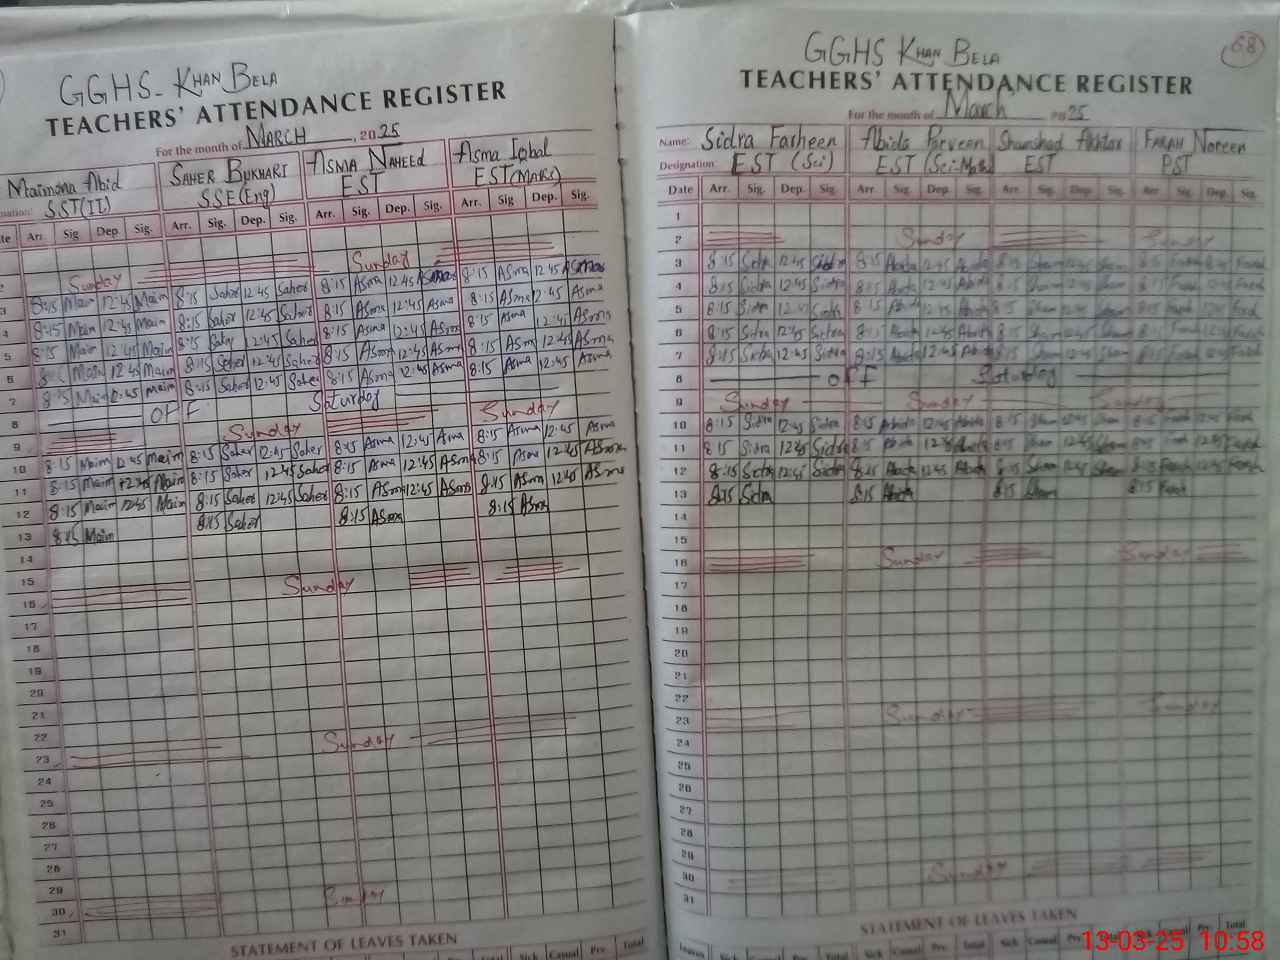 GGHS- KHAN BELA
TEACHERS' ATTENDANCE REGISTER
For the month of MARCH, 2025
Maimona Abid SAHER BUKHARI ASMA NAHEEd Asma Iqbal
SST(II) SSE(Eng) EST EST(MARS)
Arr. Sig Dep Sig. Arr. Sig. Dep. Sig. Arr. Sig. Dep. Sig. Arr. Sig. Dep. Sig.
2 Sunday Sunday
3 8:15 Maim 12:45 Maim 8:15 Saher 12:45 Saher 8:15 Asma 12:45 Asma 8:15 ASma 12:45 ASma
4 8:15 Maim 12:45 Maim 8:15 Saher 12:45 Saher 8:15 Asma 12:45 Asma 8:15 ASma 12:45 Asma
5 8:15 Maim 12:45 Maim 8:15 Saher 12:45 Saher 8:15 Asma 12:45 Asma 8:15 Asma 12:45 Asma
6 Maim 12:45 Maim 8:15 Saher 12:45 Saher 8:15 Asma 12:45 Asma 8:15 Asma 12:45 Asma
7 8:15 Maim 12:45 Maim 8:15 Saher 12:45 Saher 8:15 Asma 12:45 Asma 8:15 Asma 12:45 Asma
8 OFF Saturday
9 Sunday Sunday
10 8:15 Maim 12:45 Maim 8:15 Saher 12:45 Saher 8:15 Asma 12:45 Asma 8:15 Asma 12:45 Asma
11 8:15 Maim 12:45 Maim 8:15 Saher 12:45 Saher 8:15 Asma 12:45 ASma 8:15 Asma 12:45 ASma
12 8:15 Maim 12:45 Maim 8:15 Saher 12:45 Saher 8:15 ASma 12:45 ASma 8:15 ASma 12:45 ASma
13 8:15 Maim 8:15 Saher 8:15 ASma 8:15 ASma
14
15
16 Sunday
17
18
19
20
21
22
23 Sunday
24
25
26
27
28
29
30 Sunday
31
STATEMENT OF LEAVES TAKEN
Sick Casual Prv. Total
68
GGHS KHAN BELA
TEACHERS' ATTENDANCE REGISTER
For the month of March 2025
Name: Sidra Farheen Abida Parveen Shamshad Akhtar FARAH NOREEN
Designation: EST (Sci) EST (Sci-Math) EST PST
Date Arr. Sig. Dep. Sig. Arr. Sig. Dep. Sig. Arr. Sig. Dep. Sig. Arr. Sig. Dep. Sig.
1
2 Sunday Sunday
3 8:15 Sidra 12:45 Sidra 8:15 Abida 12:45 Abida 8:15 Sham 12:45 Sham 8:15 Farah
4 8:15 Sidra 12:45 Sidra 8:15 Abida 12:45 Abida 8:15 Sham 12:45 Sham 8:15 Farah
5 8:15 Sidra 12:45 Sidra 8:15 Abida 12:45 Abida 8:15 Sham 12:45 Sham 8:15 Farah
6 8:15 Sidra 12:45 Sidra 8:15 Abida 12:45 Abida 8:15 Sham 12:45 Sham 8:15 Farah
7 8:15 Sidra 12:45 Sidra 8:15 Abida 12:45 Abida 8:15 Sham 12:45 Sham 8:15 Farah
8 OFF Saturday
9 Sunday Sunday Sunday
10 8:15 Sidra 12:45 Sidra 8:15 Abida 12:45 Abida 8:15 Sham 12:45 Sham 8:15 Farah
11 8:15 Sidra 12:45 Sidra 8:15 Abida 12:45 Abida 8:15 Sham 12:45 Sham 8:15 Farah 12:45 Farah
12 8:15 Sidra 12:45 Sidra 8:15 Abida 12:45 Abida 8:15 Sham 12:45 Sham 8:15 Farah 12:45 Farah
13 8:15 Sidra 8:15 Abida 8:15 Sham 8:15 Farah
14
15
16 Sunday Sunday
17
18
19
20
21
22
23 Sunday Sunday
24
25
26
27
28
29
30 Sunday
31
STATEMENT OF LEAVES TAKEN
Leaves Sick Casual Prv. Total Sick Casual Prv. Total Sick Casual Prv. Total Sick Casual Prv. Total
13-03-25 10:58